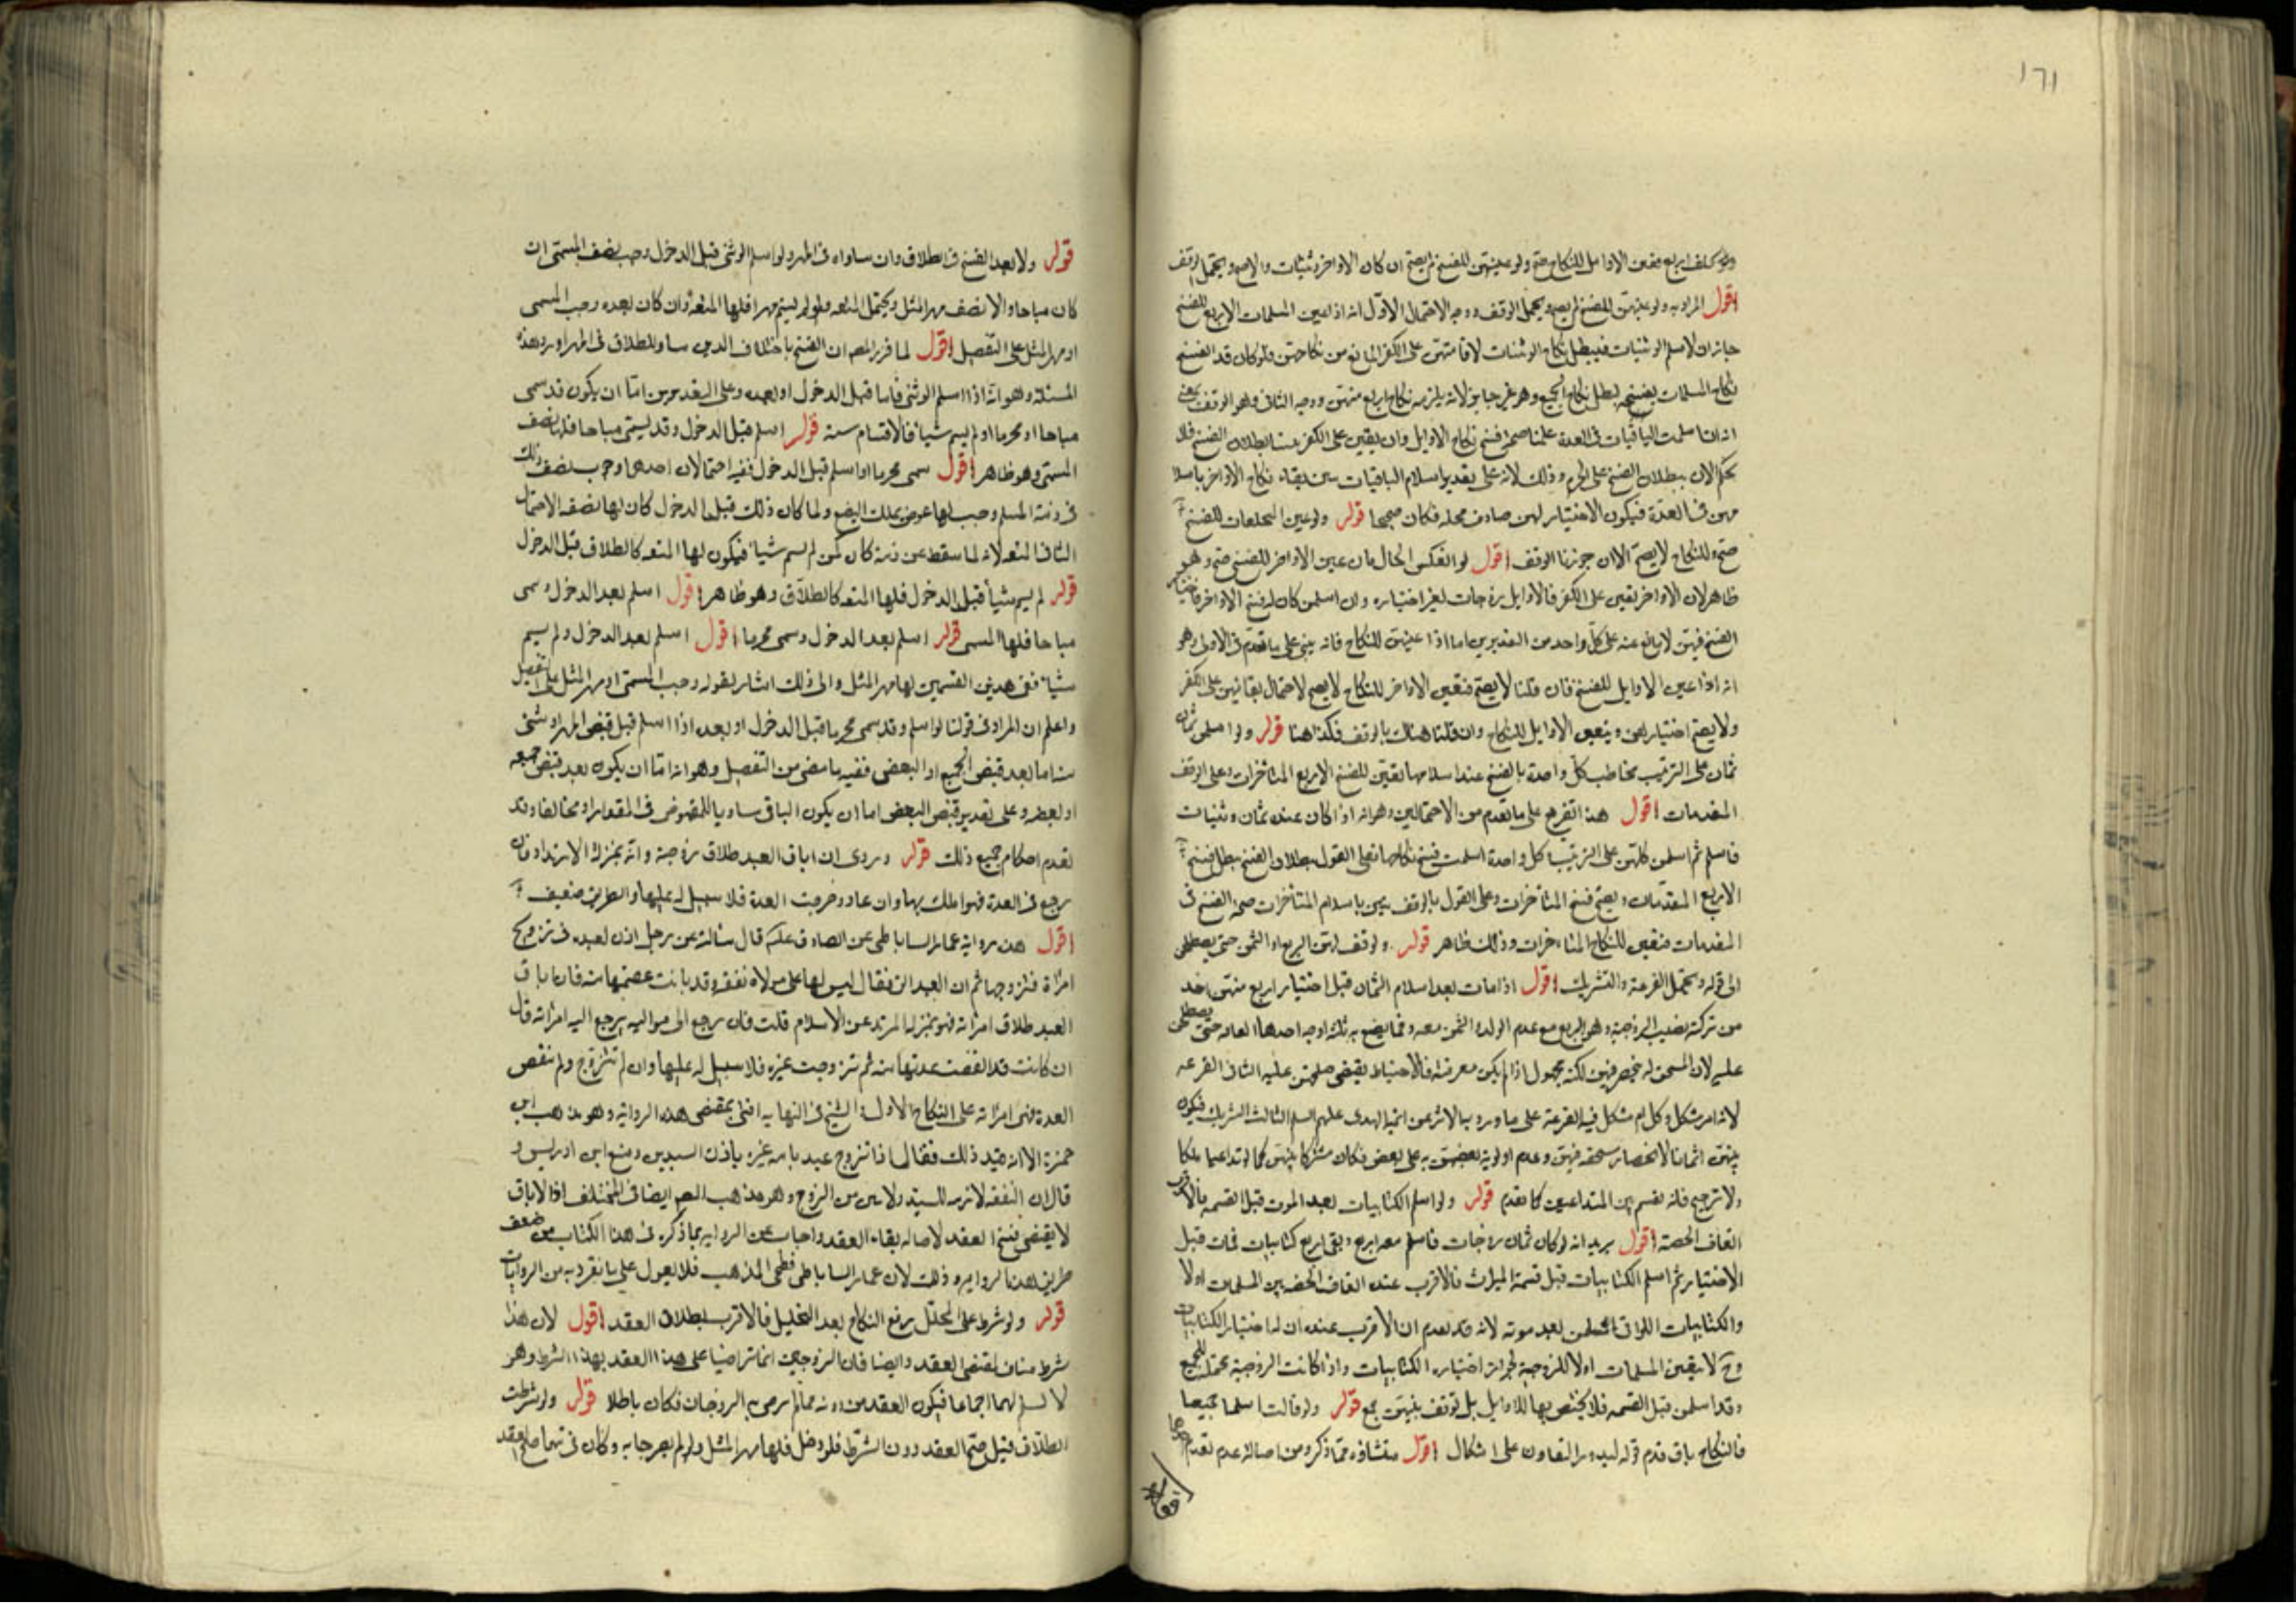 ١٦١
اقول المراد به ولو عينهن للفسخ لم يصح ويحتمل الوقف ووجه الاحتمال الاول انه اذا عين المسلمات الاربع للفسخ
جاز ان لا سلم الوثنيات فيبطل نكاح الوثنيات لاقامتهن على الكفر المانع من نكاحهن فلو كان قد انفسخ
نكاح المسلمات بفسخه لبطل نكاح الجميع وهو غير جايز لانه يلزمه نكاح اربع منهن ووجه الثاني وهو الوقف
انه ان اسلمت الباقيات في العدة علمنا صحة فسخ نكاح الاوايل وان بقين على الكفر بطلان الفسخ فلا
يحكم الان ببطلان الفسخ على الجزم وذلك لانه على تقدير اسلام الباقيات بقاء نكاح الاواخر
في العدة فيكون الاختيار لهن صادف محله فكان صحيحا قوله ولو عين المختلعات للفسخ
صح وللنكاح لا يصح الا ان جوزنا الوقف اقول لو انعكس الحال بان عين الاواخر للفسخ صح وهو
ظاهر لان الاواخر بقين على الكفر فالاوايل زوجات لغير اختياره وان اسلمن كان له فسخ الاواخر
الفسخ فيهن لا مانع عنه على كل واحد من التقديرين اما اذا عينهن للنكاح فانه يبنى على ما تقدم في الاولى وهو
انه اذا عين الاوايل للفسخ فان قلنا لا يصح فتعين الاواخر للنكاح لا يصح لاحتمال بقائهن على الكفر
ولا يصح اختيارهن ويتعين الاوايل للنكاح وان قلنا هناك بالوقف فكذا هنا قوله ولو اسلمن ثمان
ثمان على الترتيب مخاطب كل واحدة بالفسخ عند اسلامها تعين للفسخ الاربع المتأخرات وعلى الوقف
المتقدمات اقول هذا تفريع على ما تقدم من الاحتمالين وهو انه اذا كان عنده ثمان وثنيات
فاسلم ثم اسلمن كلهن على الترتيب كل واحدة اسلمت فسخ نكاحها فعلى القول ببطلان الفسخ يبطل فسخ
الاربع المتقدمات ويصح فسخ المتأخرات وعلى القول بالوقف باسلام المتأخرات صحة الفسخ في
المتقدمات فتعين للنكاح المتأخرات وذلك ظاهر قوله ولو وقف لهن الربع او الثمن حتى يصطلحن
الى قوله ويحتمل القرعة والتشريك اقول اذا مات بعد اسلام الثمان قبل اختيار اربع منهن اخذ
من تركته نصيب الزوجية وهو الربع مع عدم الولد او الثمن معه وفيما يصنع به ثلثة اوجه احدها ايقافه حتى يصطلحن
عليه لان المستحق له منحصر فيهن لكنه مجهول اذا لم يكن معرفته فالاحتياط يقتضي صلحهن عليه الثاني القرعه
لانه امر مشكل وكل امر مشكل فيه القرعة على ما ورد بالاثر عن ائمة الهدى عليهم السلم الثالث التشريك فيكون
بينهن اثمانا لانحصار مستحقه فيهن وعدم اولوية بعضهن به على بعض فكان مشتركا بينهن كما لو تداعيا ملكا
ولا ترجيح فانه يقسم بين المتداعيين كما تقدم قوله ولو اسلم الكتابيات بعد الموت قبل القسمه فالاقرب
ايقاف الحصة اقول يريد انه لو كان ثمان زوجات فاسلم معه اربع وبقى اربع كتابيات فمات قبل
الاختيار ثم اسلم الكتابيات قبل قسمة الميراث فالاقرب عنده ايقاف الحصة بين المسلمات اولا
والكتابيات اللواتي اسلمن بعد موته لانه قد تقدم ان الاقرب عنده ان له اختيار الكتابيات
وح لا يتعين المسلمات اولا للزوجية لجواز اختياره الكتابيات واذا كانت الزوجية محتملة للجميع
وقد اسلمن قبل القسمه فلا يختص بها الاوايل بل توقف بينهن جمع قوله ولو قالت اسلما جميعا
فالنكاح باق قدم قوله لندور التقارن على اشكال اقول منشاؤه مما ذكر ومن اصالة عدم تقدم احدهما
قوله ولا يعد الفسخ في الطلاق وان ساواه في المهر ولو اسلم الوثني قبل الدخول وجب نصف المسمى ان
كان مباحا والا نصف مهر المثل ويحتمل المتعه ولو لم يسم مهرا فلها المتعة وان كان بعده وجب المسمى
او مهر المثل على التفصيل اقول لما قرر المصـ ان الفسخ باختلاف الدين مساو للطلاق في المهر اورد هذه
المسئلة وهو انه اذا اسلم الوثني فاما قبل الدخول او بعده وعلى التقديرين اما ان يكون قد سمى
مباحا او محرما او لم يسم شيأ فالاقسام ستة قوله اسلم قبل الدخول وقد يسمى مباحا فلها نصف
المسمى وهو ظاهر اقول سمى محرما اذا اسلم قبل الدخول ففيه احتمالان احدهما وجوب نصف ذلك
في ذمة المسلم وجب لها عوض بملك البضع ولما كان ذلك قبل الدخول كان لها نصفه الاحتمال
الثاني المتعه لانه لما سقط عن ذمته كان كمن لم يسم شيأ فيكون لها المتعه كالطلاق قبل الدخول
قوله لم يسم شيأ قبل الدخول فلها المتعه كالطلاق وهو ظاهر اقول اسلم بعد الدخول وسمى
مباحا فلها المسمى قوله اسلم بعد الدخول وسمى محرما اقول اسلم بعد الدخول ولم يسم
شيأ ففي هذين القسمين لها مهر المثل والى ذلك اشار بقوله وجب المسمى او مهر المثل على التفصيل
واعلم ان المراد في قولنا لو اسلم وقد سمى محرما قبل الدخول او بعده اذا اسلم قبل قبض المهر او شئ
منه اما بعد قبض الجميع او البعض ففيه ما مضى من التفصيل وهو انه اما ان يكون بعد قبض جميعه
او بعضه وعلى تقدير قبض البعض اما ان يكون الباقي مساويا للمقبوض في المقدار او مخالفا وقد
تقدم احكام جميع ذلك قوله وروى ان اباق العبد طلاق زوجته وانه بمنزلة الارتداد فان
رجع في العدة فهو املك بها وان عاد وخرجت العدة فلا سبيل له عليها والطريق ضعيف
اقول هذه رواية عمار الساباطي عن الصادق عليه قال سألته عن رجل اذن لعبده في تزويج
امرأة فتزوجها ثم ان العبد ابق فقال ليس لها على مولاه نفقه وقد بانت عصمتها منه فان اباق
العبد طلاق امرأته فهو بمنزلة المرتد عن الاسلام قلت فان رجع الى مواليه يرجع اليه امرأته قال
ان كانت قد انقضت عدتها منه ثم تزوجت غيره فلا سبيل له عليها وان لم تتزوج ولم تنقض
العدة فهي امرأته على النكاح الاول الشيخ في النهايه افتى بمقتضى هذه الرواية وهو مذهب ابن
حمزة الا انه قيد ذلك فقال اذا تزوج عبد بامه غيره باذن السيدين ومنع ابن ادريس و
قال ان النفقه لازمه للسيد ولا تبين من الزوج وهو مذهب المصـ ايضا في المختلف اذ الاباق
لا يقتضي فسخ العقد لاصاله بقاء العقد واجاب عن الروايه بما ذكره في هذا الكتاب من ضعف
طريق هذه الرواية وذلك لان عمار الساباطي فطحي المذهب فلا يعول على ما تفرد به من الروايات
قوله ولو شرط على المحلل رفع النكاح بعد التحليل فالاقرب بطلان العقد اقول لان هذا
شرط مناف لمقتضى العقد وايضا فان الزوجين انما تراضيا على هذا العقد بهذا الشرط وهو
لا يسلم لهما اجماعا فيكون العقد من دونه مما لم يرض به الزوجان فكان باطلا قوله ولو شرطت
الطلاق قيل صح العقد دون الشرط فلو دخل فلها مهر المثل ولو لم يصرحا به وكان في نيتهما صح العقد